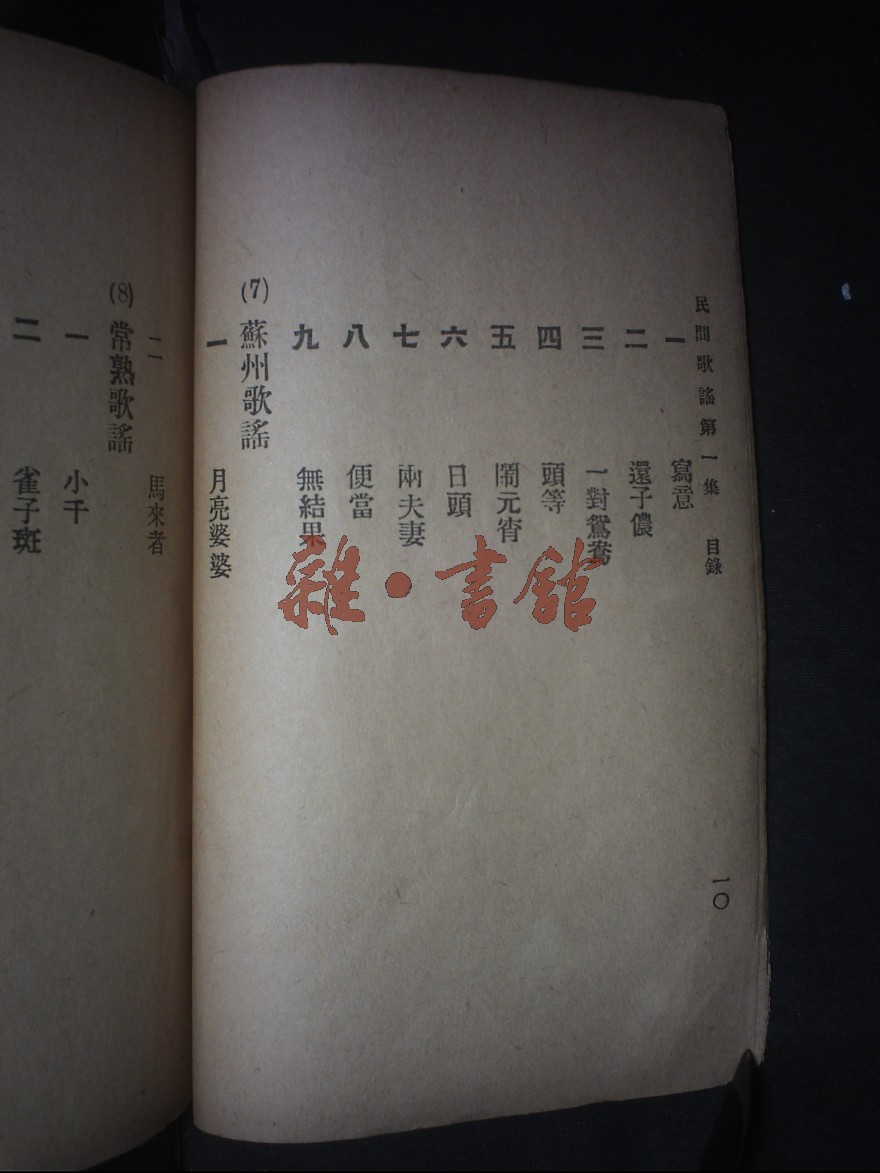 民間歌謠第一集 目錄
一 寫意
二 還子儂
三 一對鴛鴦
四 頭等
五 鬧元宵
六 日頭
七 兩夫妻
八 便當
九 無結果
(7) 蘇州歌謠
一 月亮婆婆
一〇
二 馬來者
(8) 常熟歌謠
一 小干
二 雀子斑
雜·書館